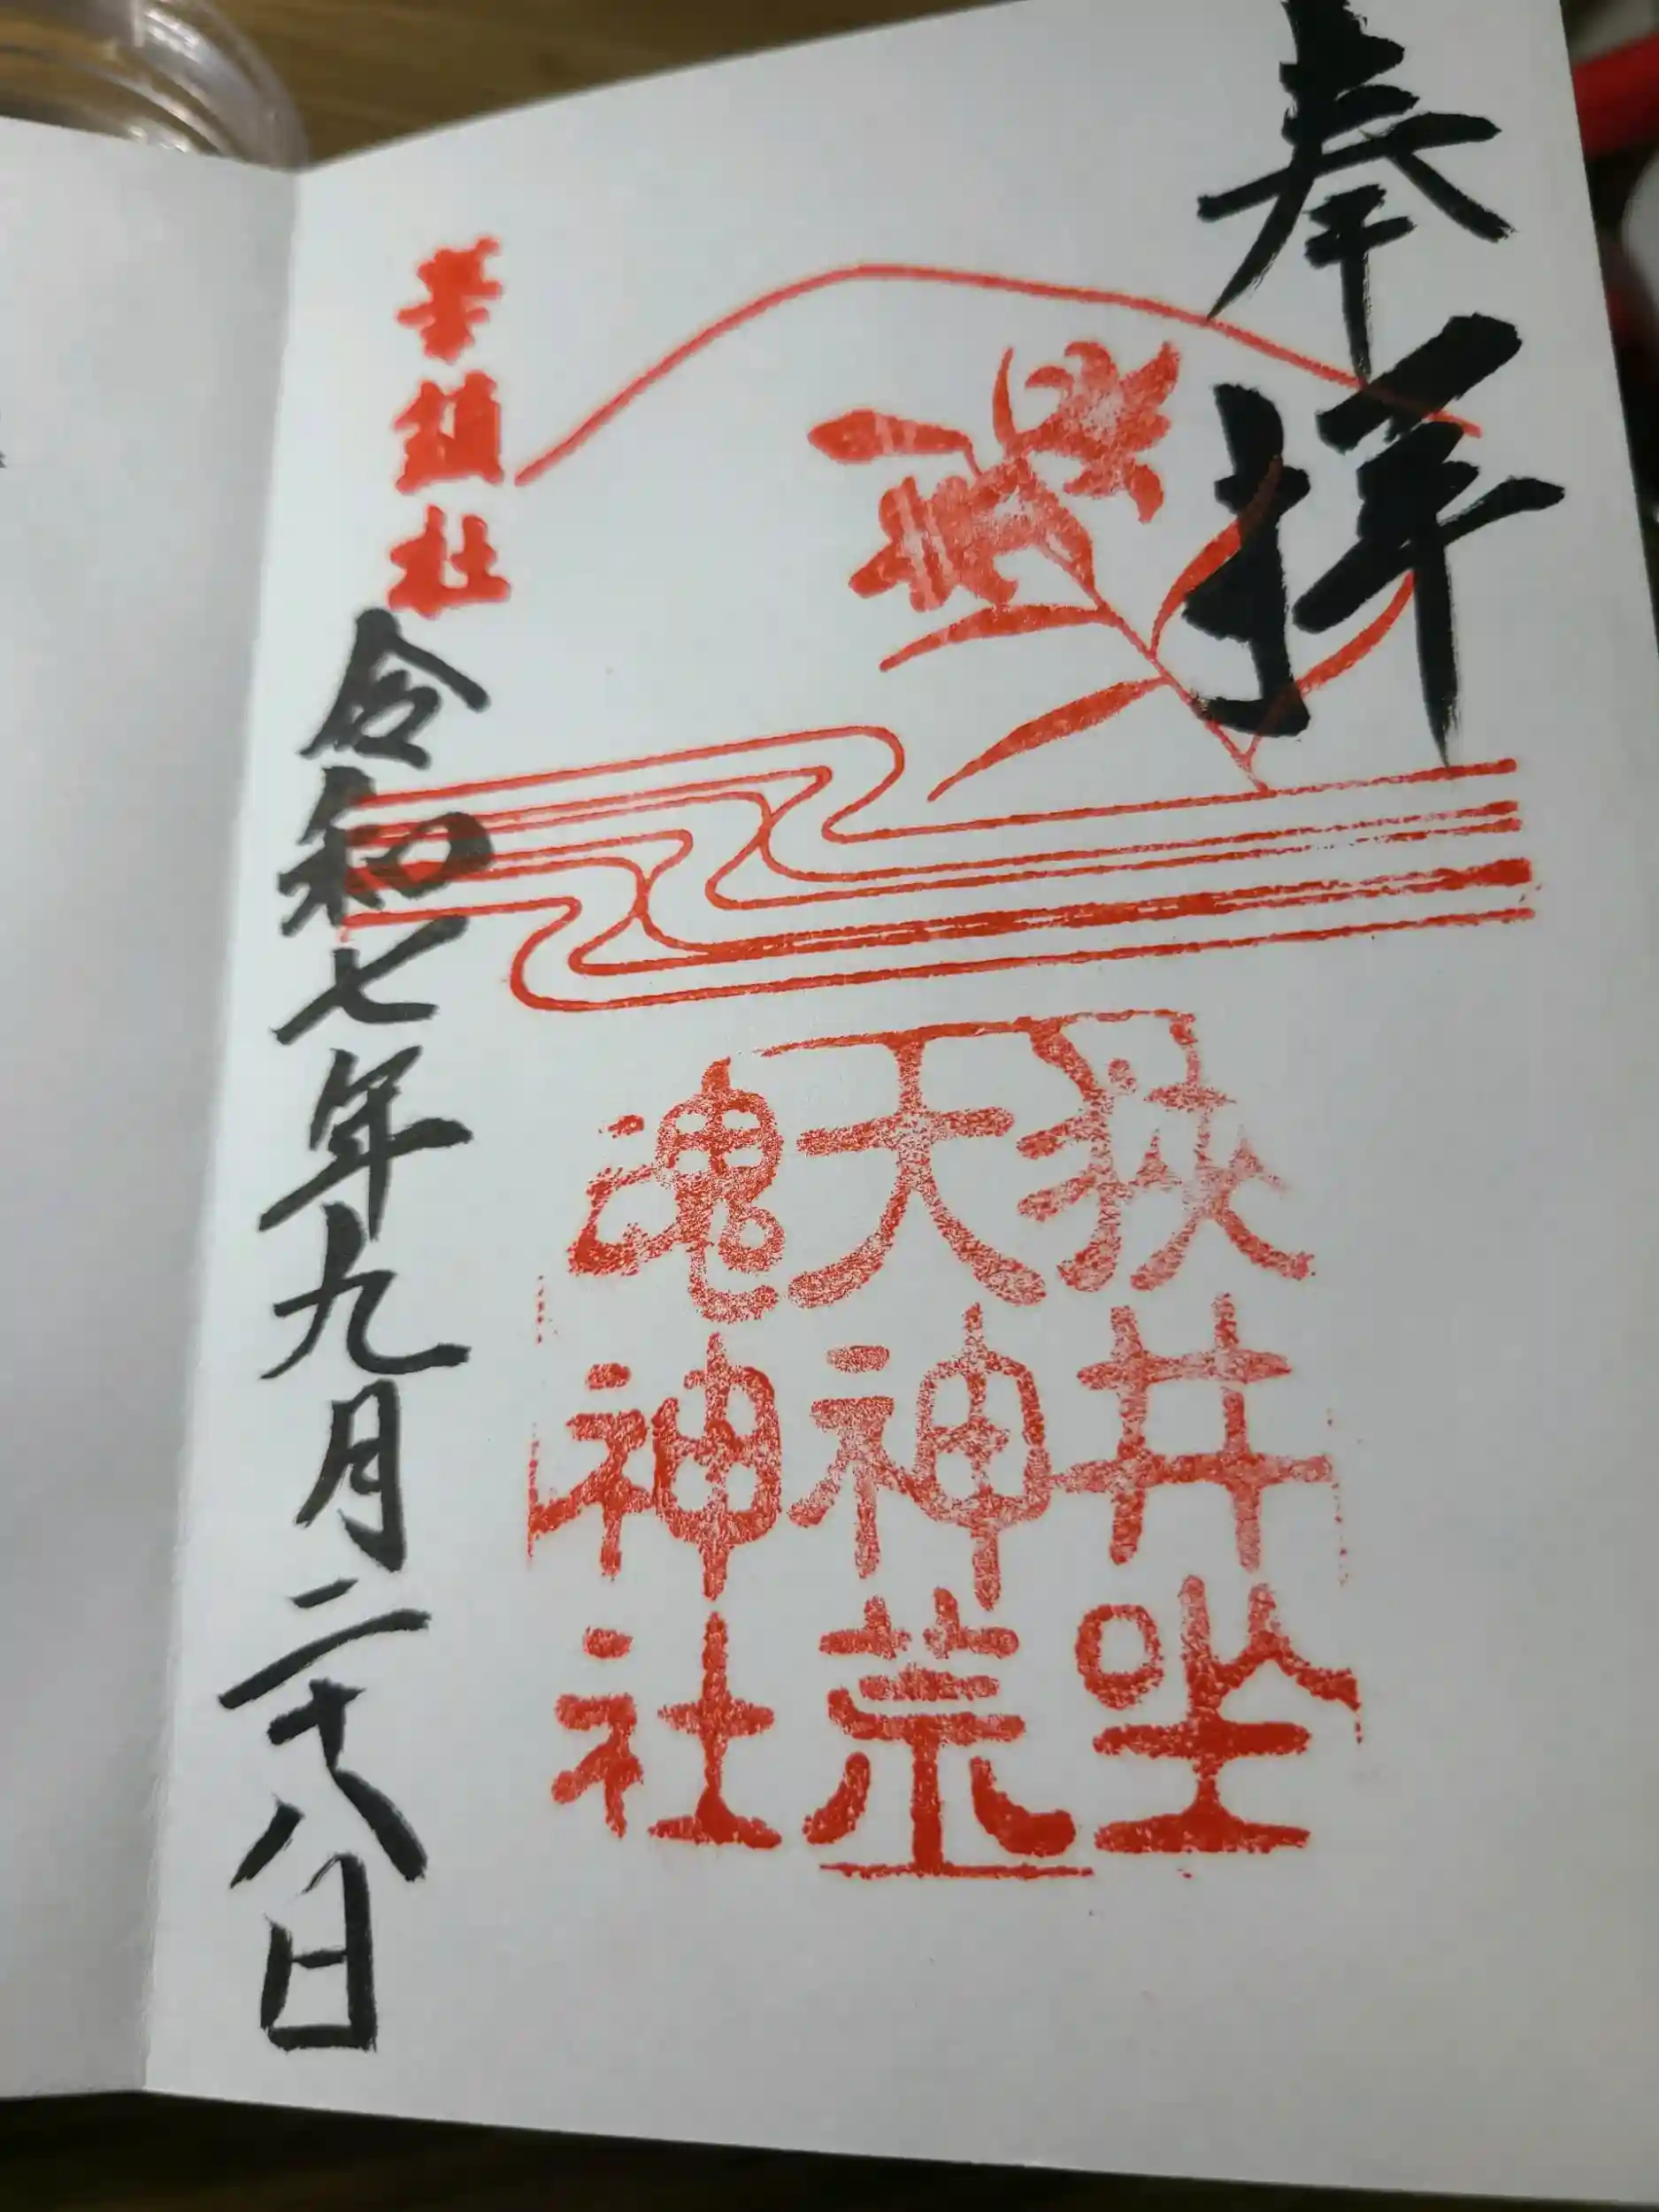 奉拝
狭井坐
大神荒
魂神社
華鎮社
令和七年九月二十八日